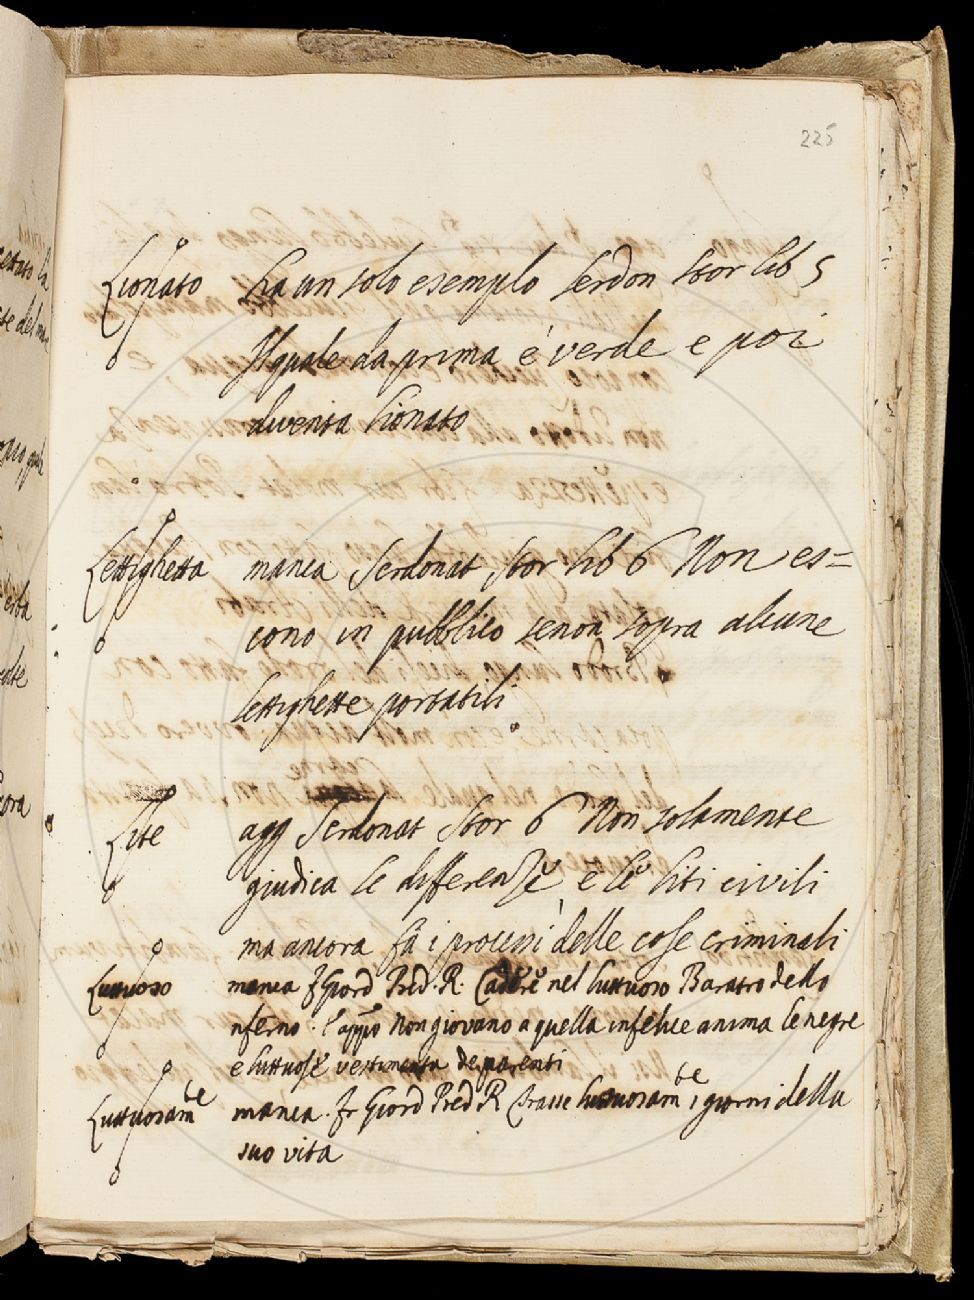 225
Lionato ha un solo esempio Serdon Stor lib 5
Il quale da prima è verde e poi
diventa lionato
Lettighetta manca Serdonat Stor lib 6 Non es=
cono in pubblico senon sopra alcune
lettighette portatili
Lite agg Serdonat Stor 6 Non solamente
giudica le differenze e le liti civili
ma ancora fa i processi delle cose criminali
Luttuoso manca fr Giord Pred. R. Cadere nel luttuoso Baratro dello
nferno. E appo Non giovano a quella infelice anima le negre
e luttuose vestimenta de parenti
Luttuosamte manca. fr Giord Pred R Trasse luttuosamte i giorni della
suo vita